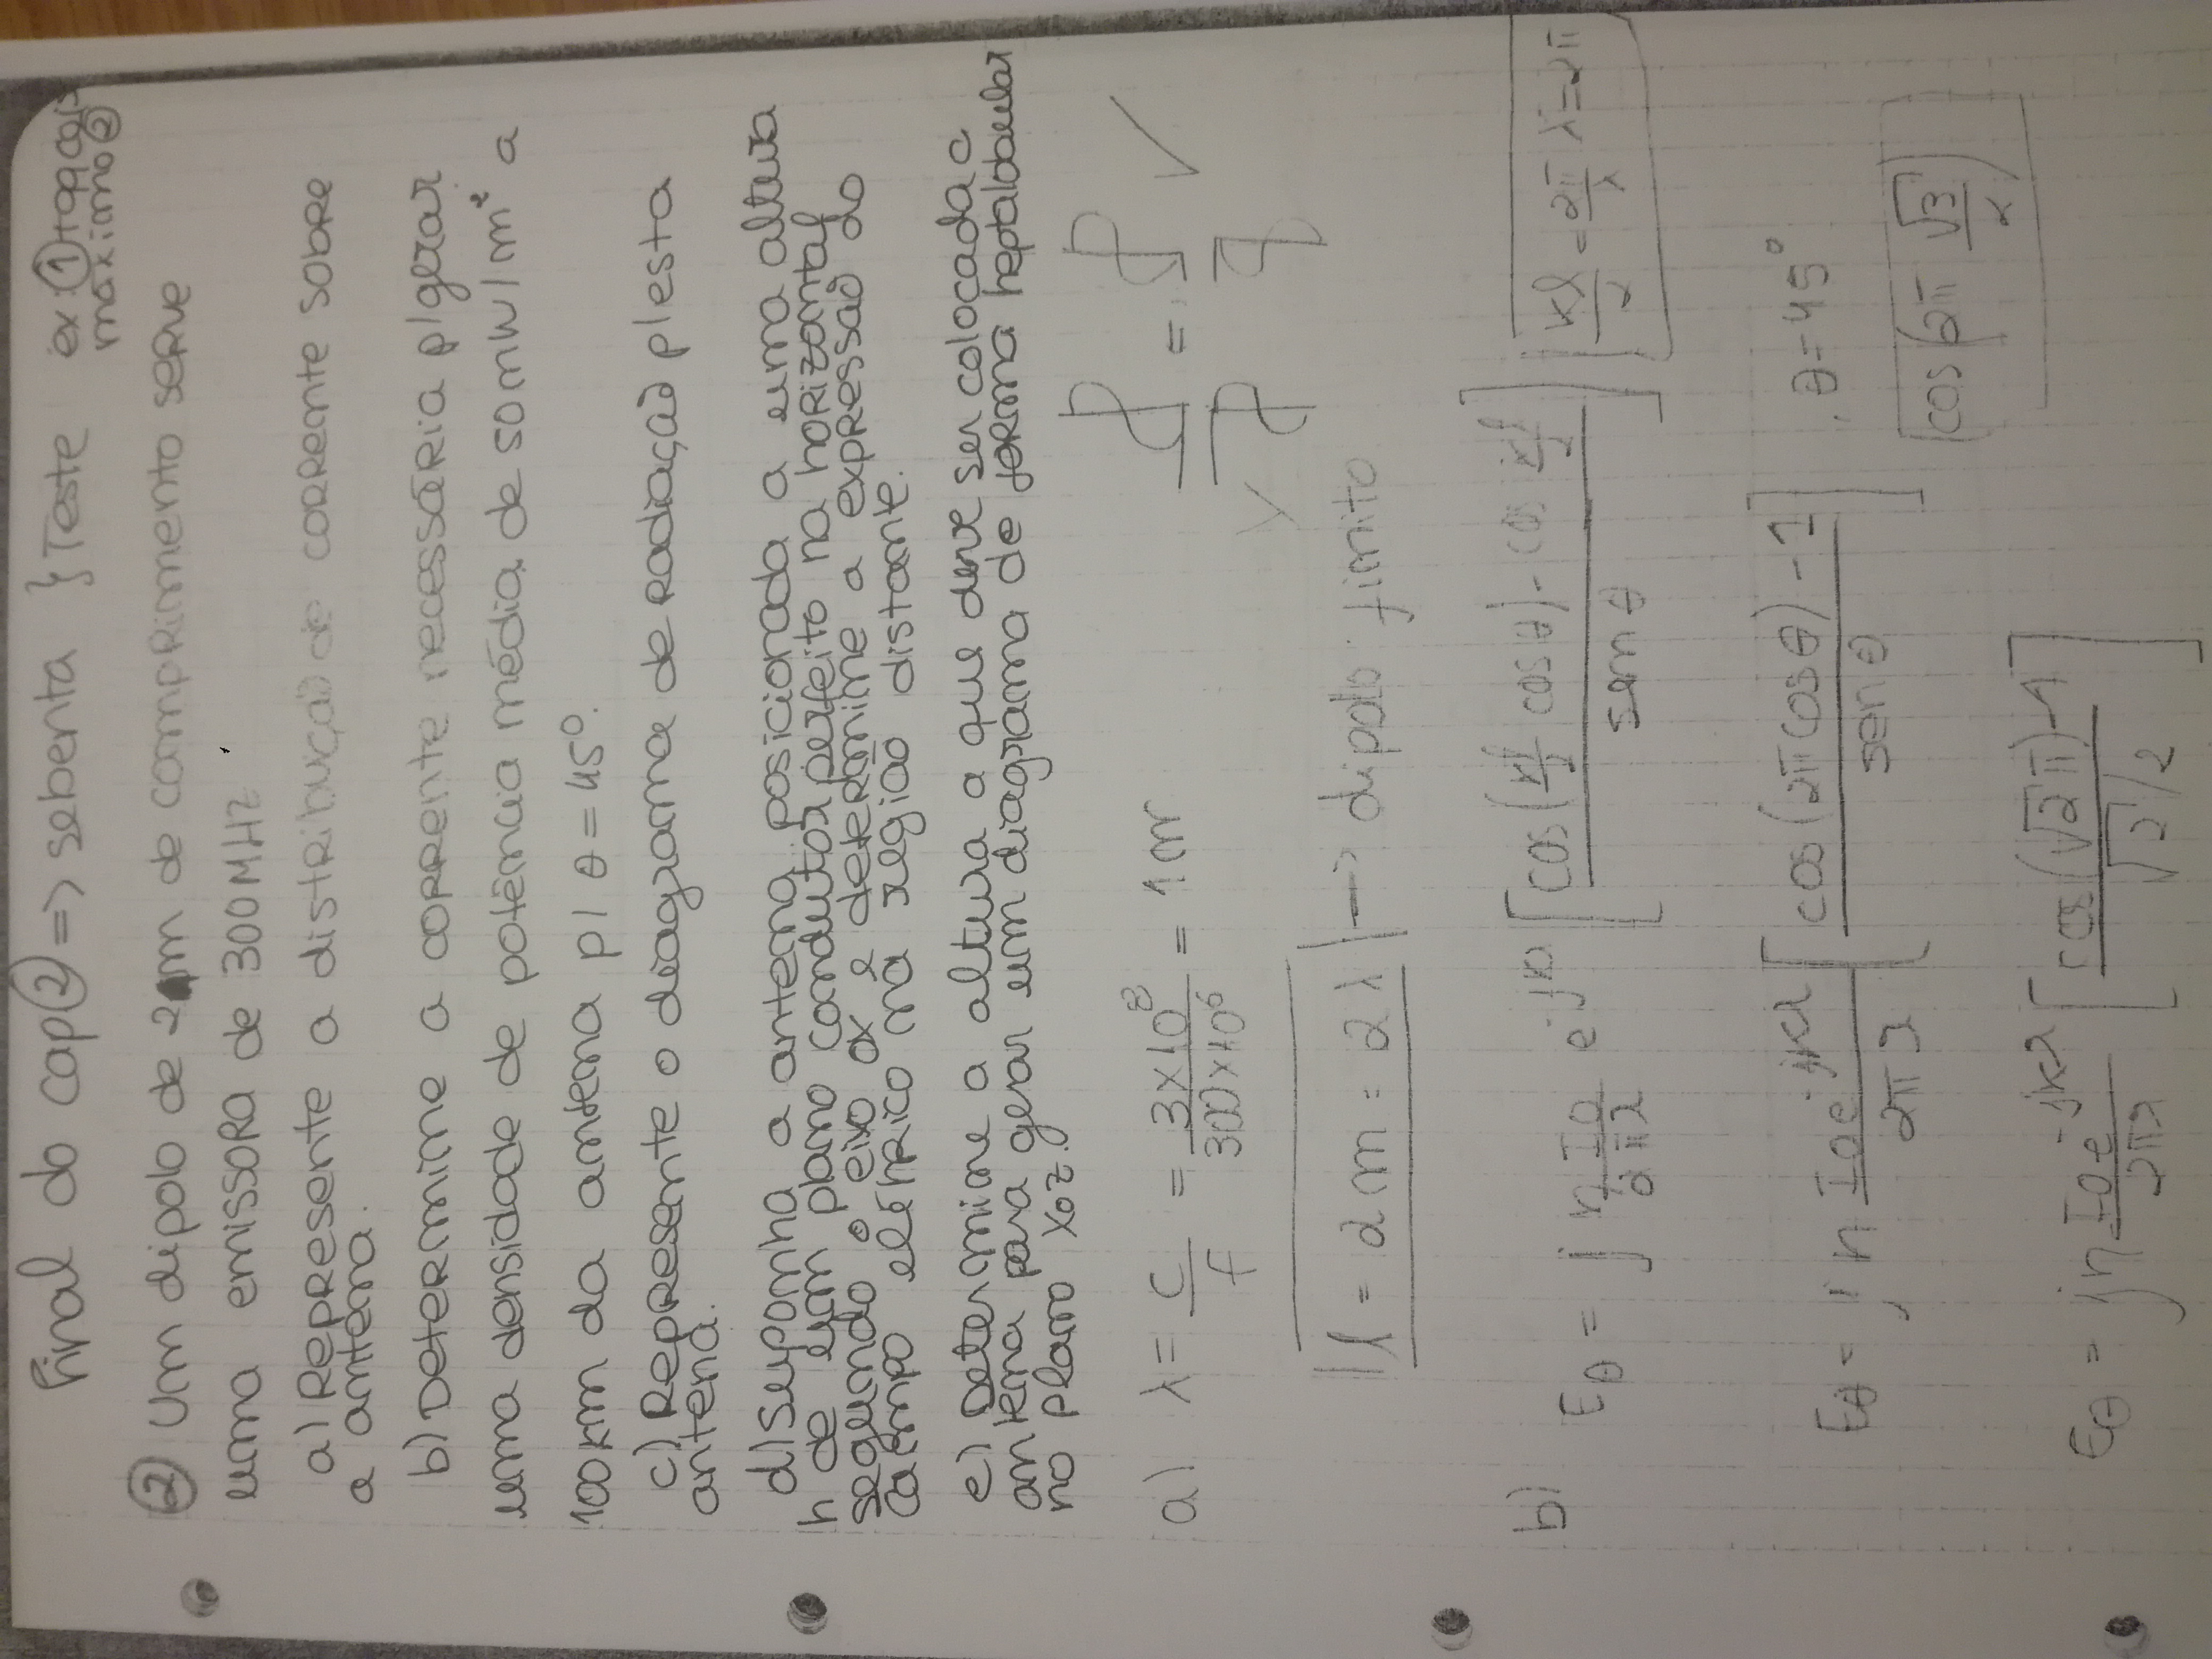 Final do cap ② => sebenta } Teste ex: ① + qq coisa
máximo ②
② Um dipolo de 2m de comprimento serve
uma emissora de 300MHz
a) Represente a distribuição de corrente sobre
a antena.
b) Determine a corrente necessária p/gerar
uma densidade de potência média de 50mW/m² a
100km da antena p/ θ = 45°.
c) Represente o diagrama de radiação p/esta
antena.
d) Suponha a antena posicionada a uma altura
h de um plano condutor perfeito na horizontal
segundo o eixo ox e determine a expressão do
campo elétrico na região distante.
e) Determine a altura a que deve ser colocada a
antena para gerar um diagrama de forma heptalobular
no plano xoz.
a) λ = c/f = 3×10⁸/300×10⁶ = 1m
l = 2m = 2λ → dipolo finito
b) Eθ = jη I0/2πr e^-jkr [cos(kl/2 cosθ) - cos kl/2 / senθ] kl/2 = 2π/λ λ = 2π
Eθ = jη I0e^-jkr/2πr [cos(2π cosθ) - 1 / senθ] , θ = 45°
cos(2π √3/2)
Eθ = jη I0e^-jkr/2πr [cos(√2π) - 1 / √2/2]